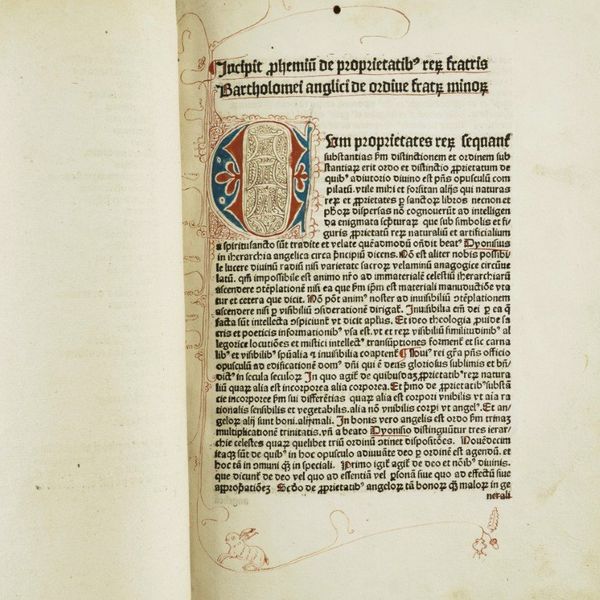 Incipit ꝓhemiũ de proprietatibꝰ reꝝ fratris
Bartholomei anglici de ordine fratꝝ minoꝝ
CUm proprietates reꝝ sequant᷑
substantias ẜm distinctionem et ordinem sub
stantiaꝝ erit ordo et distinctio ꝓprietatum de
quibꝰ adiutorio diuino est p̃ns opusculũ com
pilatũ. vtile mihi et forsitan alijs qui naturas
reꝝ et ꝓprietates ꝑ sanctoꝝ libros necnon et
ph̃oꝝ dispersas nõ cognouerũt ad intelligen
da enigmata sc̃pturaꝝ que sub simbolis et fi
guris ꝓprietatũ reꝝ naturaliũ et artificialium
a spiritusancto sũt tradite et velate quẽadmodũ oñdit beatꝰ Dyonisius
in iherarchia angelica circa p̃ncipiũ dicens. Nõ est aliter nobis possibi
le lucere diuinũ radiũ nisi varietate sacroꝝ velaminũ anagogice circũue
latũ. qm̃ impossibile est animo nr̃o ad immaterialẽ celestiũ iherarchiarũ
ascendere ↄtẽplationẽ nisi ea que ẜm ip̃m est materiali manuductiõe vta
tur et cetera que dicit. Nõ põt animꝰ noster ad inuisibiliũ ↄtẽplationem
ascendere nisi ꝑ visibiliũ ↄsiderationẽ dirigat᷑. Inuisibilia em̃ dei ꝑ ea q̃
facta sũt intellecta ↄspiciunt᷑ vt dicit apl̃us. Et ideo theologia ꝓuide sa
cris et poeticis informationibꝰ vsa est. vt ex reꝝ visibiliũ similitudinibꝰ al
legorice locutiões et mistici intellectꝰ transũptiones forment᷑ et sic carna
libꝰ et visibilibꝰ sp̃ualia ⁊ inuisibilia coaptent᷑
opusculũ ad edificationẽ domꝰ dñi qui ẽ deus gloriosus sublimis et bñ/
dictꝰ in secula seculoꝝ In quo agit᷑ de quibusdaꝫ ꝓprietatibꝰ reꝝ natura
liũ quaꝝ alia est incorporea alia corporea. Et p̃mo de ꝓprietatibꝰ substãt
cie incorporee ẜm sui differẽtias quaꝝ alia est corpori vnibilis vt aĩa ra
tionalis sensibilis et vegetabilis. alia nõ vnibilis corpi vt angelꝰ. Et an
geloꝝ alij sunt boni. alij mali. In bonis vero angelis est ordo ẜm trinaꝫ
multiplicationẽ trinitatis. vñ a beato Dyonisio distinguũtur tres ierar/
chie celestes quaꝝ quelibet triũ ordinũ ↄtinet dispositões. Nouẽdecim
itaqꝫ sũt de quibꝰ in hoc opusculo adiuuãte deo ꝑ ordinẽ est agendũ. et
hoc tã in ↄmuni qꝫ in speciali. Primo igit᷑ agit᷑ de deo et nõibꝰ diuinis.
que dicunt᷑ de deo vel quo ad essentiã vel ꝑsonã siue quo ad effectũ siue
appropriatiõeꝫ. Scd̃o de ꝓprietatibꝰ angeloꝝ tũ bonoꝝ qꝫ maloꝝ in ge
nerali